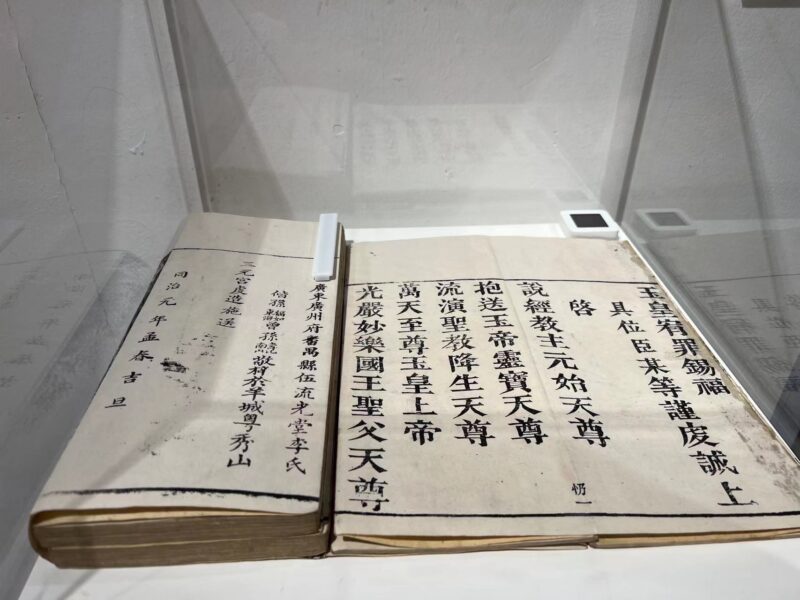 玉皇宥罪錫福
具位臣某等謹虔誠上
啓
說經教主元始天尊
抱送玉帝靈寶天尊
流演聖教降生天尊
萬天至尊玉皇上帝
光嚴妙樂國王聖父天尊
廣東廣州府番禺縣伍流光堂李氏
偕孫曾孫敬梓於羊城粵秀山
三元宮虔造施送
同治元年孟春吉旦